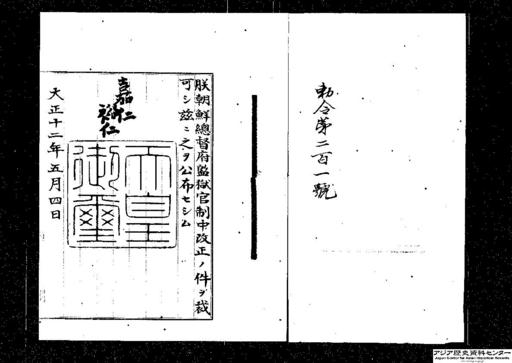 勅令第二百一號
朕朝鮮總督府監獄官制中改正ノ件ヲ裁
可シ茲ニ之ヲ公布セシム
嘉仁
裕仁
天皇
御璽
大正十二年五月四日
アジア歴史資料センター
Japan Center for Asian Historical Records